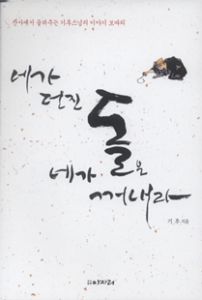 산사에서 들려주는 기후스님의 이야기 보따리
네가
던진
돌은
네가
꺼내라
기후 지음